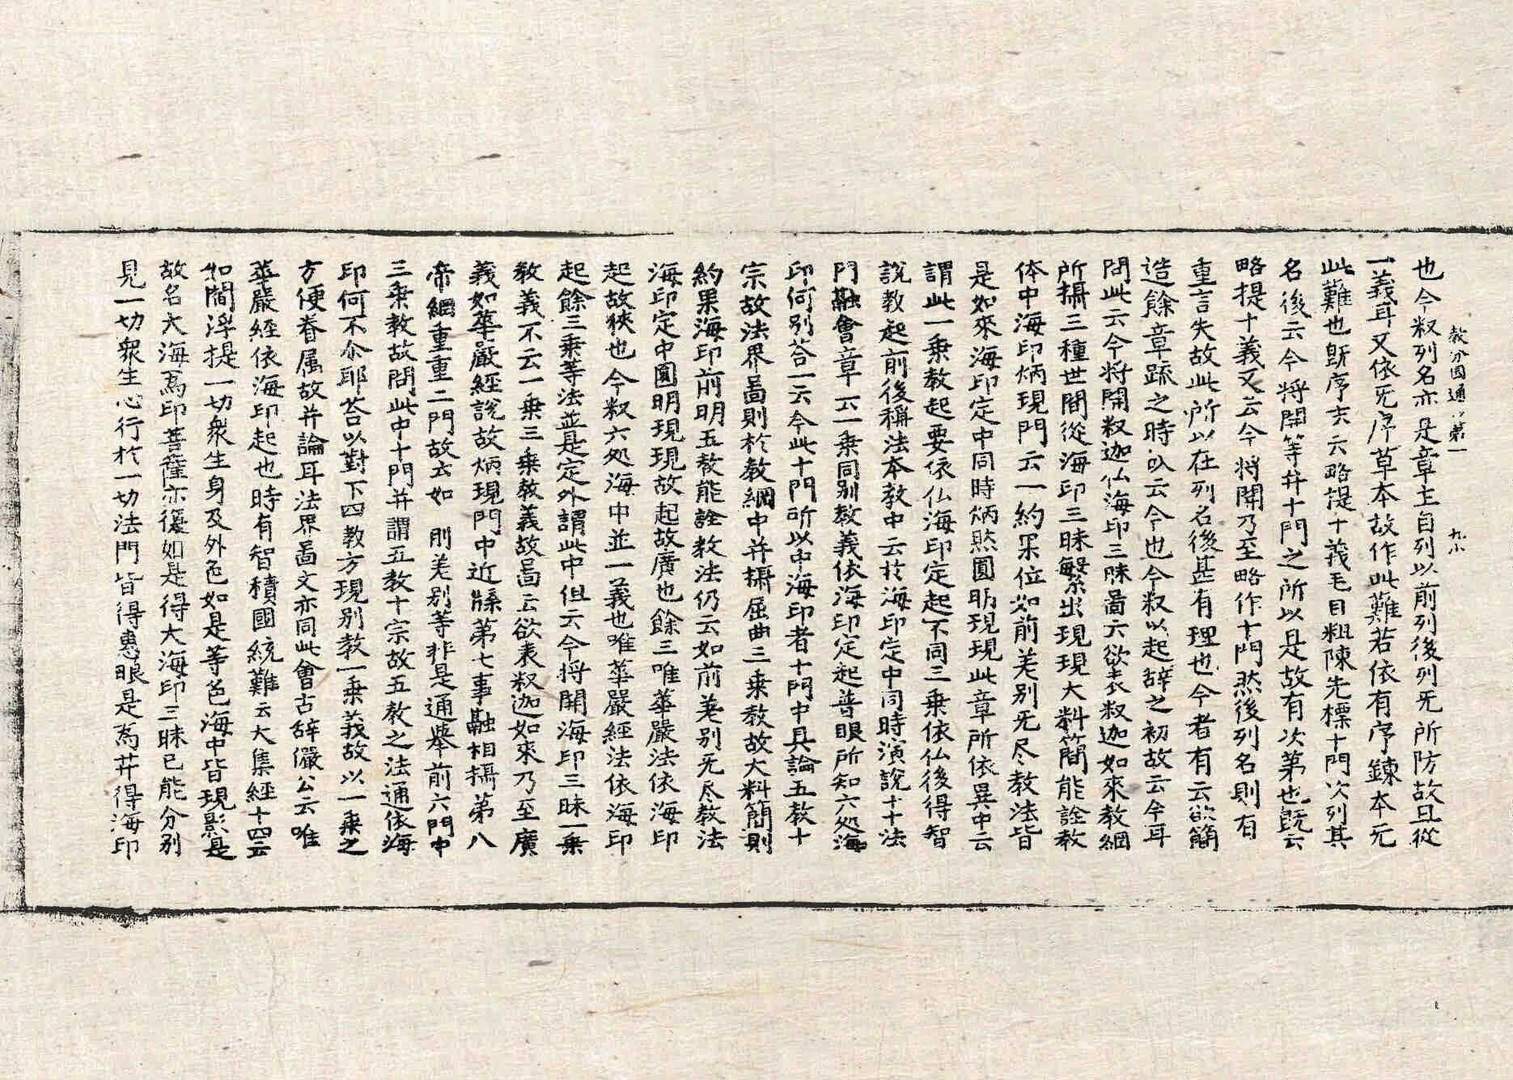 教分圓通 第一 九
也今叙列名亦是章主自列以前列後列无所防故且從
一義耳又依无序草本故作此難若依有序鍊本无
此難也旣序亦云略提十義毛目粗陳先標十門次列其
名後云今將開等并十門之所以是故有次第也旣云
略提十義又云今將開乃至略作十門然後列名則有
重言失故此所以在列名後甚有理也今者有云欲簡
造餘章䟽之時以云今也今叙以起辞之初故云今耳
問此云今將開叙迦仏海印三昧啚云欲表叙迦如來教網
所攝三種世間從海印三昧繁出現現大料簡能詮教
体中海印炳現門云一約果位如前差別无尽教法皆
是如來海印定中同時炳然圓明現現此章所依異中云
謂此一乗教起要依仏海印定起不同三乗依仏後得智
說教起前後稱法本教中云於海印定中同時演說十十法
門融會章云一乗同別教義依海印定起普眼所知六処海
印何別荅一云今此十門所以中海印者十門中具論五教十
宗故法界啚則於教網中并攝屈曲三乗教故大料簡則
約果海印前明五教能詮教法仍云如前差別无尽教法
海印定中圓明現現故起故廣也餘三唯華嚴法依海印
起故狹也今叙六処海中並一義也唯華嚴經法依海印
起餘三乗等法並是定外謂此中但云今將開海印三昧一乗
教義不云一乗三乗教義故啚云欲表叙迦如來乃至廣
義如華嚴經說故炳現門中近牒第七事融相攝第八
帝網重重二門故云如 則差別等非是通舉前六門中
三乗教故問此中十門并謂五教十宗故五教之法通依海
印何不尒耶荅以對下四教方現別教一乗義故以一乗之
方便眷属故并論耳法界啚文亦同此會古辞儼公云唯
華嚴經依海印起也時有智積國統難云大集經十四云
如閻浮提一切衆生身及外色如是等色海中皆現影是
故名大海爲印菩薩亦復如是得大海印三昧已能分別
見一切衆生心行於一切法門皆得惠眼是爲井得海印